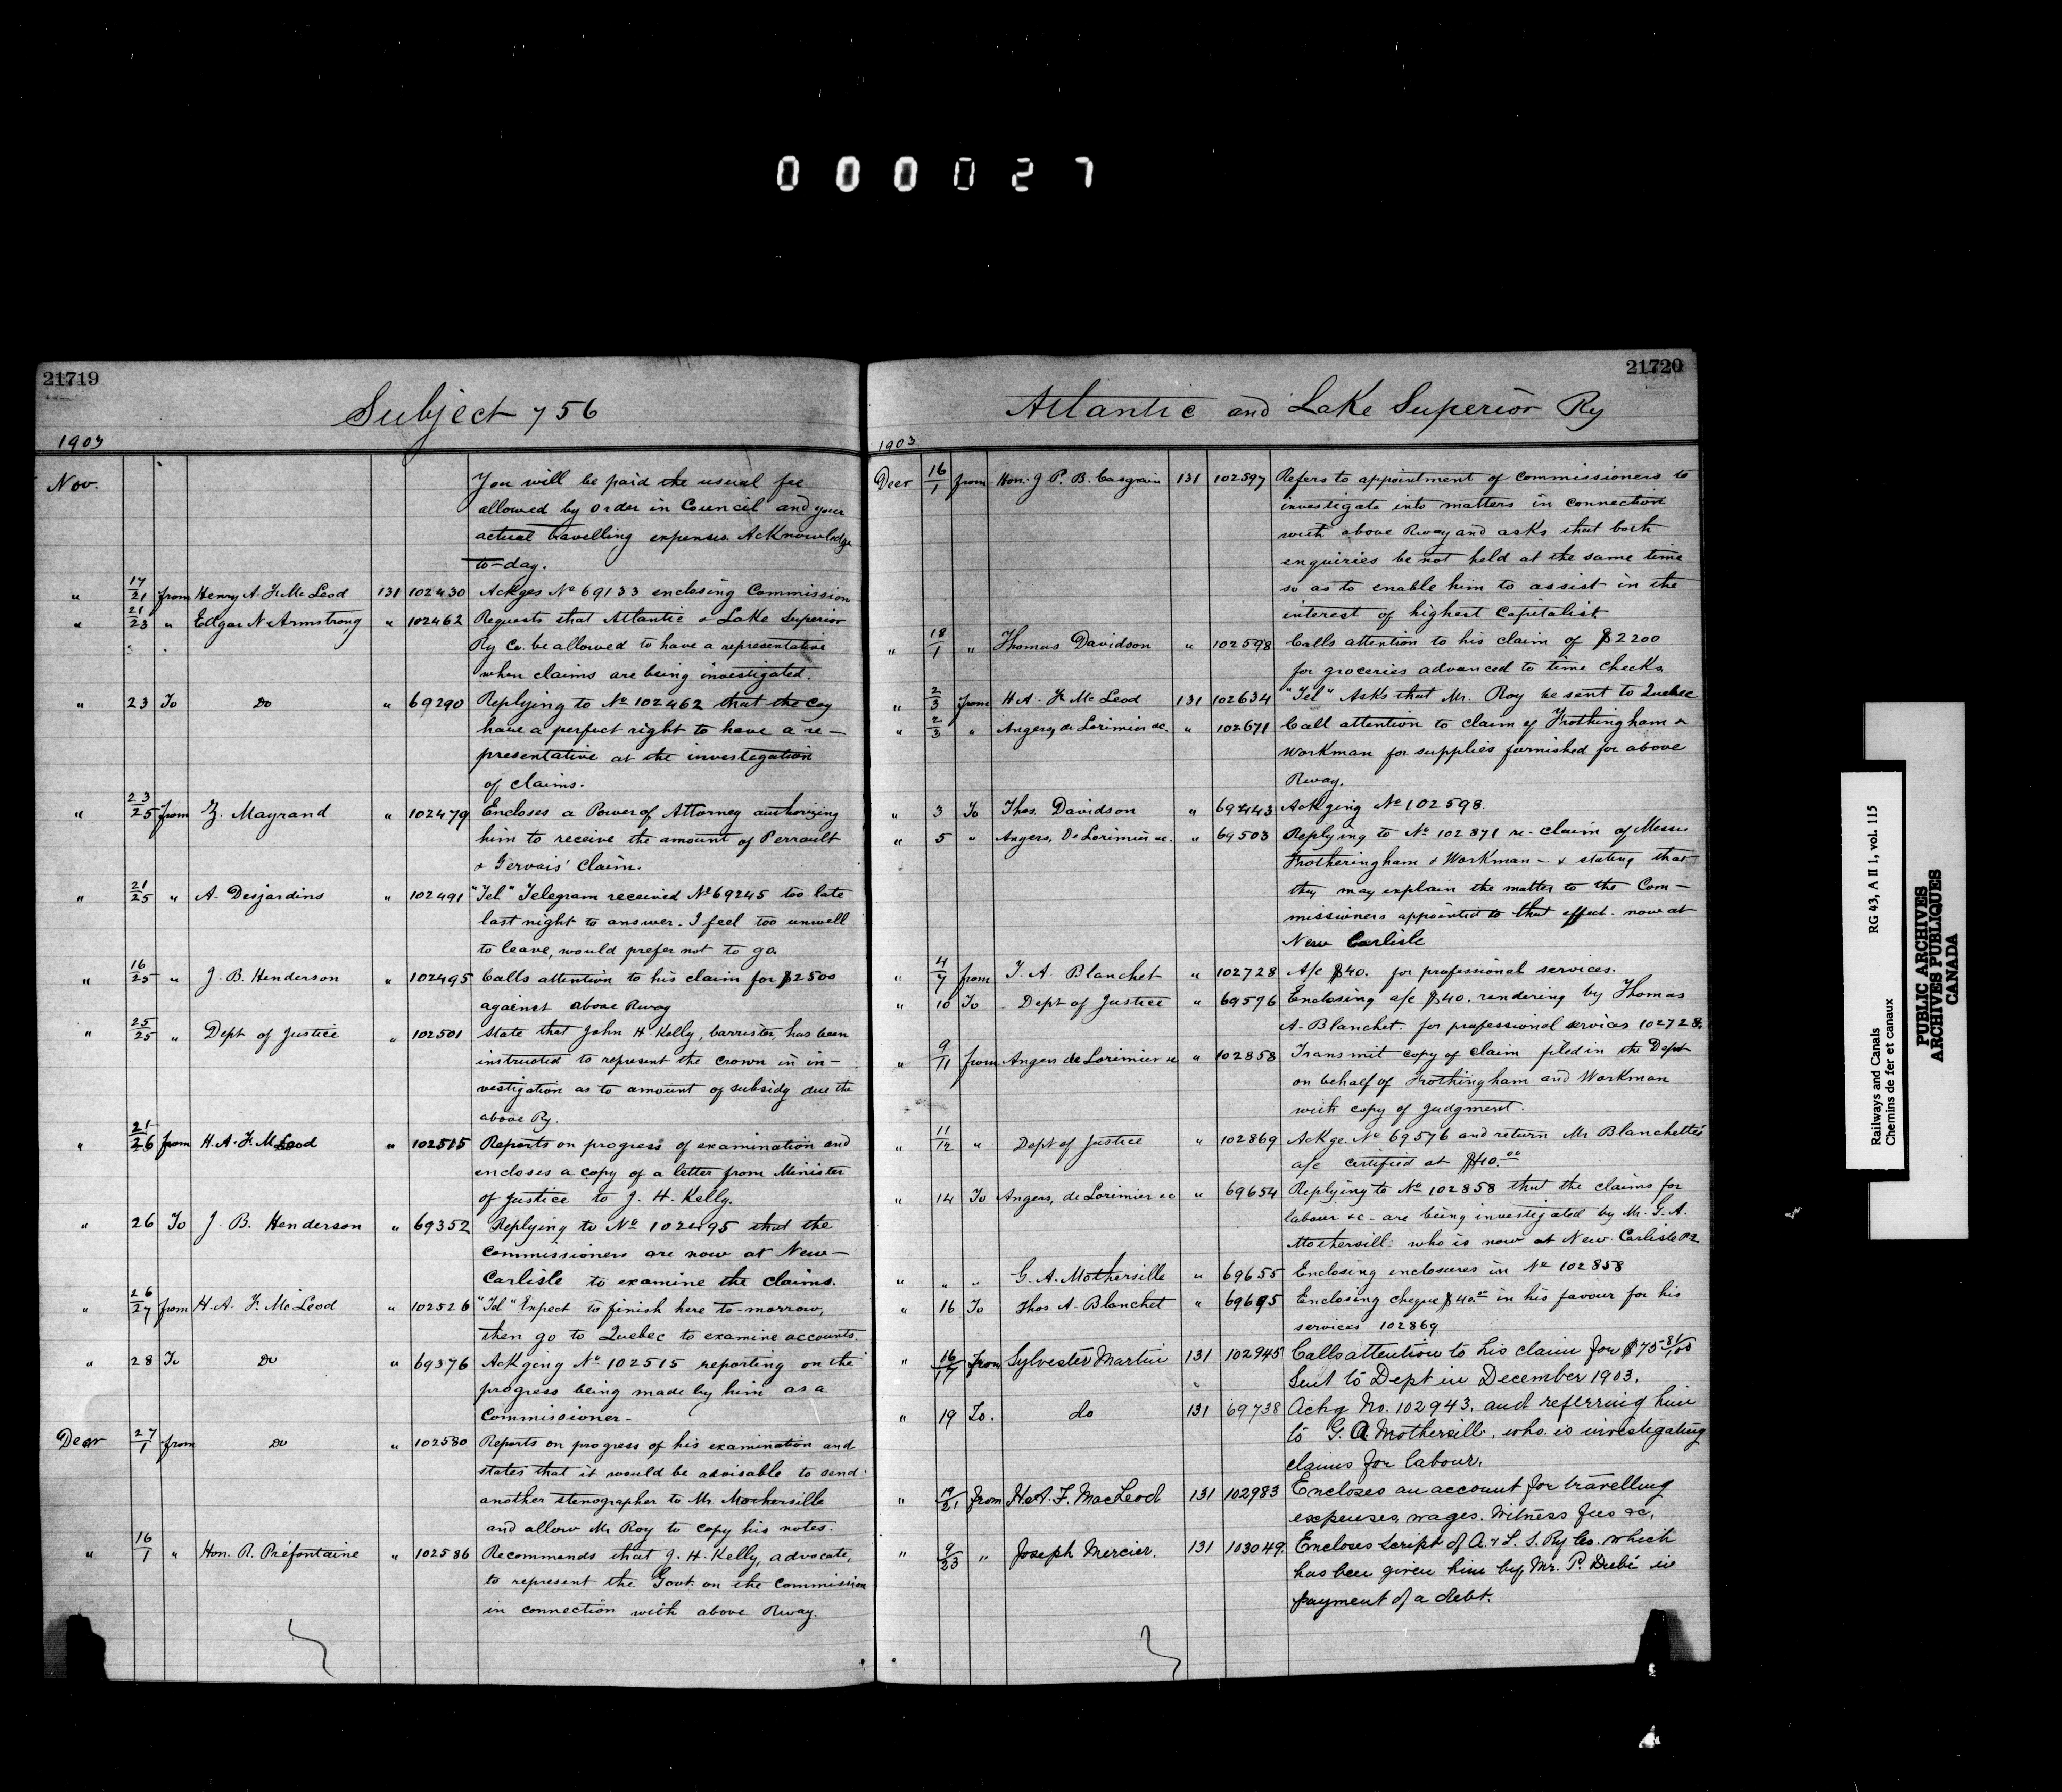 000027
21719
Subject 756
1903
Nov. You will be paid the usual fee
allowed by order in Council and your
actual travelling expenses. Acknowledge
to-day.
" 17/21 from Henry A. F. McLeod 131 102430 Ackges No 69133 enclosing Commission
" 21/23 " Edgar N Armstrong " 102462 Requests that Atlantic & Lake Superior
Ry Co. be allowed to have a representative
when claims are being investigated.
" 23 To Do " 69290 Replying to No 102462 that the Coy
have a perfect right to have a re-
presentative at the investigation
of claims.
" 23/25 from Z. Mayrand " 102479 Encloses a Power of Attorney authorizing
him to receive the amount of Perrault
& Gervais' Claim.
" 21/25 " A. Desjardins " 102491 "Tel" Telegram received No 69245 too late
last night to answer. I feel too unwell
to leave, would prefer not to go.
" 16/25 " J. B. Henderson " 102495 Calls attention to his claim for $2500
against above Rway
" 25/25 " Dept of Justice " 102501 State that John H Kelly, barrister, has been
instructed to represent the Crown in in-
vestigation as to amount of subsidy due the
above Ry.
" 21/26 from H. A. F. McLeod " 102515 Reports on progress of examination and
encloses a copy of a letter from Minister
of Justice to J. H. Kelly.
" 26 To J. B. Henderson " 69352 Replying to No 102495 that the
Commissioners are now at New-
Carlisle to examine the claims.
" 26/27 from H. A. F. McLeod " 102526 "Tel" Expect to finish here to-morrow,
then go to Quebec to examine accounts.
" 28 To Do " 69376 Ackging No 102515 reporting on the
progress being made by him as a
Commissioner-
Decr 27/1 from Do " 102580 Reports on progress of his examination and
states that it would be advisable to send
another stenographer to Mr. Mothersille
and allow Mr Roy to copy his notes.
" 16/1 " Hon. R. Préfontaine " 102586 Recommends that J. H. Kelly, advocate,
to represent the Govt. on the Commission
in connection with above Rway.
21720
Atlantic and Lake Superior Ry
1903
Decr 16/1 from Hon. J. P. B. Casgrain 131 102597 Refers to appointment of Commissioners to
investigate into matters in connection
with above Rway and asks that both
enquiries be not held at the same time
so as to enable him to assist in the
interest of highest Capitalist.
" 18/1 " Thomas Davidson " 102598 Calls attention to his claim of $2200
for groceries advanced to time checks
" 2/3 from H. A. F. McLeod 131 102634 "Tel" Asks that Mr. Roy be sent to Quebec
" 2/3 " Angers, de Lorimier &c. " 102671 Call attention to claim of Frothingham &
Workman for supplies furnished for above
Rway.
" 3 To Thos. Davidson " 69443 Ackging No 102598.
" 5 " Angers, De Lorimier &c. " 69503 Replying to No 102871 re- claim of Messrs
Frotheringham & Workman - & stating that
they may explain the matter to the Com-
missioners appointed to that effect- now at
New Carlisle
" 4/7 from T. A. Blanchet " 102728 A/c $40. for professional services.
" 10 To Dept of Justice " 69576 Enclosing a/c $40. rendering by Thomas
A. Blanchet. for professional services 102728.
" 9/11 from Angers de Lorimier &c " 102858 Transmit copy of claim filed in the Dept
on behalf of Frothingham and Workman
with copy of judgment.
" 11/12 " Dept of Justice " 102869 Ackge. No 69576 and return Mr Blanchette's
a/c certified at $40.00
" 14 To Angers, de Lorimier &c " 69654 Replying to No 102858 that the claims for
labour &c- are being investigated by Mr. G. A.
Mothersill who is now at New Carlisle P2
" " " G. A. Mothersille " 69655 Enclosing enclosures in No 102858
" 16 To Thos. A. Blanchet " 69695 Enclosing cheque $40.00 in his favour for his
services 102869.
" 16/17 from Sylvester Martin 131 102945 Calls attention to his claim for $75 81/100
Sent to Dept in December 1903.
" 19 To. do 131 69738 Ackg No. 102943. and referring him
to G. A. Mothersill, who is investigating
claims for labour.
" 19/21 from H. A. F. MacLeod 131 102983 Encloses an account for travelling
expenses, wages. Witness fees &c,
" 9/23 " Joseph Mercier. 131 103049. Encloses script of A. & L. S. Ry Co. which
has been given him by Mr. P. Dubé in
payment of a debt.
Railways and Canals RG 43, A II 1, vol. 115
Chemins de fer et canaux
PUBLIC ARCHIVES
ARCHIVES PUBLIQUES
CANADA